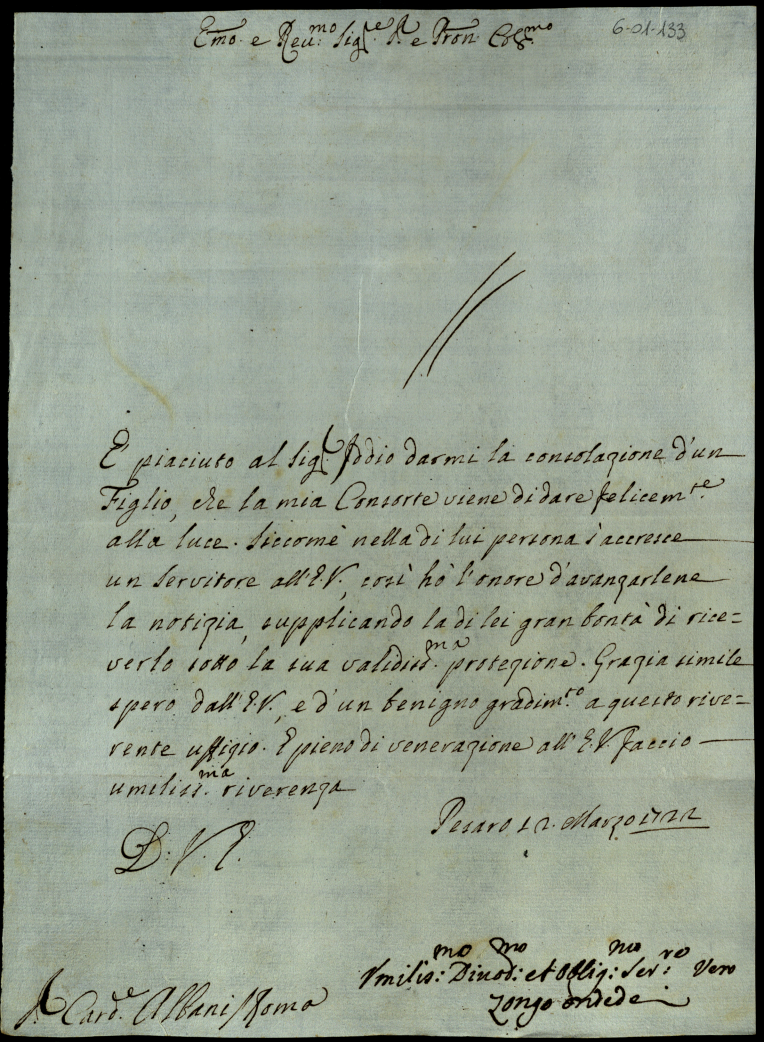 6-01-133
Emo. e Reu:mo Sig:re P.e e Pron Col:mo
È piaciuto al Sig:r Iddio darmi la consolazione d'un
Figlio, che la mia Consorte viene di dare felicem:te
alla luce. Siccome nella di lui persona s'accresce
un Servitore all'E.V., così hò l'onore d'avanzarlene
la notizia, supplicando la di lei gran bontà di rice=
verlo sotto la sua validiss:ma protezione. Grazia simile
spero dall'E.V., e d'un benigno gradim:to a questo rive=
rente uffizio. E pieno di venerazione all'E.V. faccio
umiliss:ma riverenza
Pesaro 12. Marzo 1722
D: V. E.
Vmilis:mo Diuod:mo et Oblig:mo Ser:re Vero
Zongo Ondedei
S.r Card.e Albani / Roma